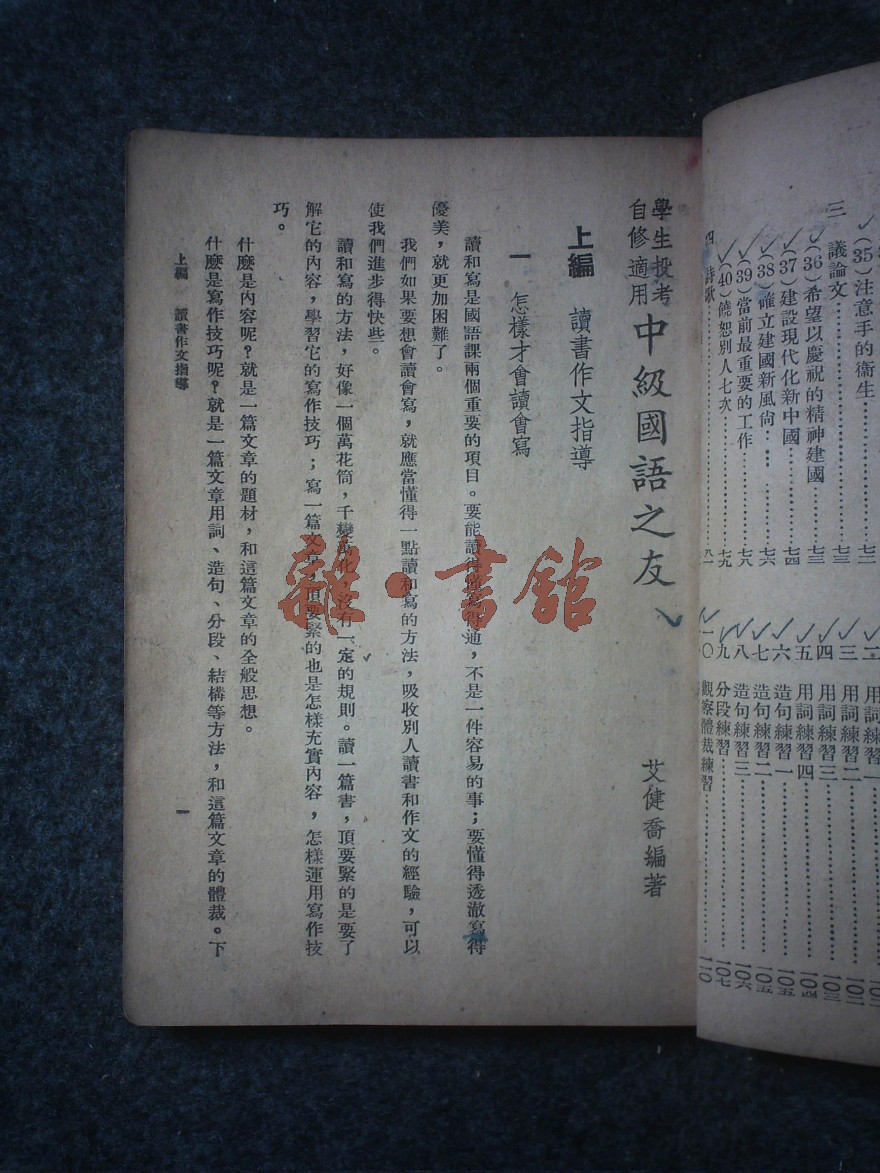 (35)注意手的衞生……七二
三 議論文……七三
(36)希望以慶祝的精神建國……七三
(37)建設現代化新中國……七四
(38)確立建國新風尙……七六
(39)當前最重要的工作……七八
(40)饒恕別人七次……七九
四 詩歌……八一
二 用詞練習一
三 用詞練習二……一〇二
四 用詞練習三……一〇三
五 用詞練習四……一〇四
六 造句練習一……一〇五
七 造句練習二……一〇五
八 造句練習三……一〇六
九 分段練習……一〇七
一〇 觀察體裁練習……一一〇
學生投考
自修適用
中級國語之友
艾健喬編著
上編 讀書作文指導
一 怎樣才會讀會寫
讀和寫是國語課兩個重要的項目。要能讀得 寫得通,不是一件容易的事;要懂得透澈寫得
優美,就更加困難了。
我們如果要想會讀會寫,就應當懂得一點讀和寫的方法,吸收別人讀書和作文的經驗,可以
使我們進步得快些。
讀和寫的方法,好像一個萬花筒,千變萬化,沒有一定的規則。讀一篇書,頂要緊的是要了
解它的內容,學習它的寫作技巧;寫一篇文章,頂要緊的也是怎樣充實內容,怎樣運用寫作技
巧。
什麼是內容呢?就是一篇文章的題材,和這篇文章的全般思想。
什麼是寫作技巧呢?就是一篇文章用詞、造句、分段、結構等方法,和這篇文章的體裁。下
上編 讀書作文指導
一
雜·書館